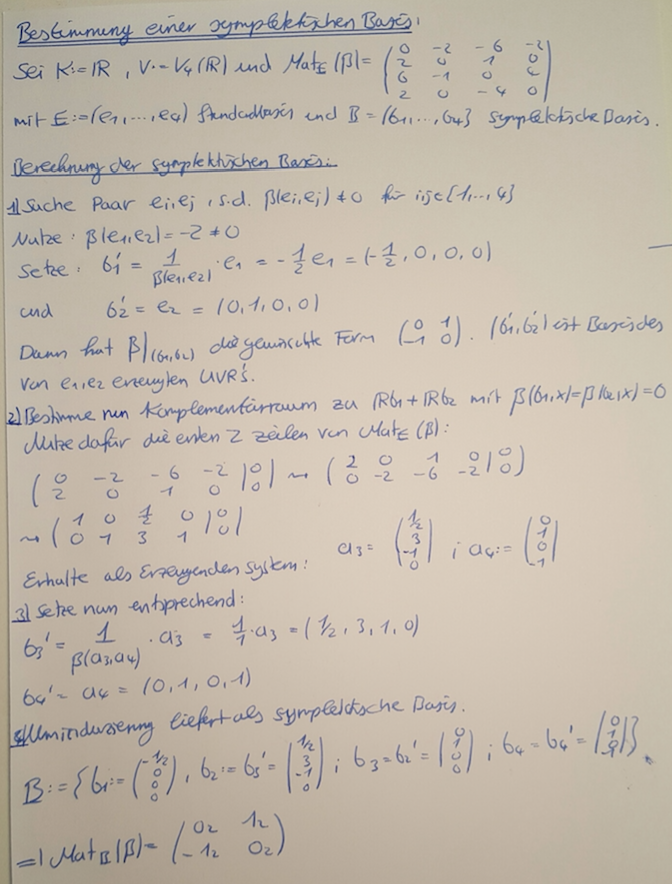 Bestimmung einer symplektischen Basis:
Sei K:=ℝ, V:=V₄(ℝ) und Mat_E(β)= (0 -2 -6 -2
2 0 1 0
6 -1 0 4
2 0 -4 0)
mit E:=(e₁,...,e₄) Standardbasis und B=(b₁,...,b₄} symplektische Basis.
Berechnung der symplektischen Basis:
1) Suche Paar eᵢ,eⱼ, s.d. β(eᵢ,eⱼ)≠0 für i,j∈{1,...,4}
Nutze: β(e₁,e₂)=-2≠0
Setze: b₁'= 1/β(e₁,e₂) · e₁ = -1/2 e₁ = (-1/2, 0, 0, 0)
und b₂'= e₂ = (0,1,0,0)
Dann hat β|(b₁,b₂) die gewünschte Form (0 1
-1 0). (b₁',b₂') ist Basis des
von e₁,e₂ erzeugten UVR's.
2) Bestimme nun Komplementärraum zu ℝb₁+ℝb₂ mit β(b₁,x)=β(b₂,x)=0
Nutze dafür die ersten 2 Zeilen von Mat_E(β):
(0 -2 -6 -2 | 0
2 0 1 0 | 0) ⇝ (2 0 1 0 | 0
0 -2 -6 -2 | 0)
⇝ (1 0 1/2 0 | 0
0 1 3 1 | 0)
a₃= (1/2
3
-1
0) ; a₄:= (0
1
0
-1)
Erhalte als Erzeugendensystem:
3) Setze nun entsprechend:
b₃'= 1/β(a₃,a₄) · a₃ = 1/1 · a₃ = (1/2, 3, 1, 0)
b₄'= a₄ = (0,1,0,1)
4) Umindizierung liefert als symplektische Basis.
B:={b₁:= (-1/2
0
0
0), b₂:=b₃'= (1/2
3
-1
0) ; b₃=b₂'= (0
1
0
0) ; b₄=b₄'= (0
1
0
-1)}.
⇒ Mat_B(β)= (0₂ 1₂
-1₂ 0₂)